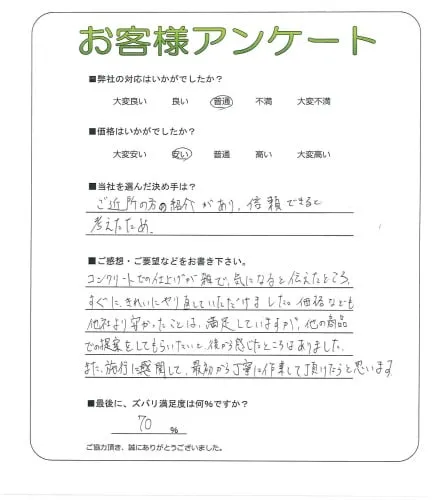 お客様アンケート
■弊社の対応はいかがでしたか?
大変良い 良い 普通 不満 大変不満
■価格はいかがでしたか?
大変安い 安い 普通 高い 大変高い
■当社を選んだ決め手は?
ご近所の方の紹介があり、信頼できると
考えたため。
■ご感想・ご要望などをお書き下さい。
コンクリートでの仕上げが雑で、気になると伝えたところ、
すぐに、きれいにやり直していただけました。価格なども
他社より安かったことは、満足していますが、他の商品
での提案をしてもらいたいと、後から感じたところはありました。
また、施行に関して、最初から丁寧に作業して頂けたらと思います
■最後に、ズバリ満足度は何%ですか?
70 %
ご協力頂き、誠にありがとうございました。